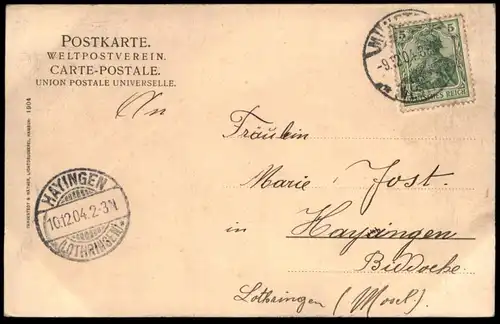 POSTKARTE.
WELTPOSTVEREIN.
CARTE-POSTALE.
UNION POSTALE UNIVERSELLE.
5 5
DEUTSCHES REICH
An
Fräulein
Marie Jost.
in Hayingen
Lothringen (Mosel.)
HAYINGEN
10.12.04.2-3N
(LOTHRINGEN)
1904